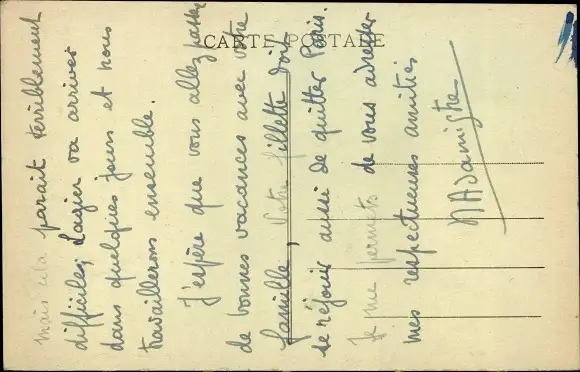 CARTE POSTALE
mais cela parait terriblement
difficile; Lagier va arriver
dans quelques jours et nous
travaillerons ensemble.
J'espère que vous allez passer
de bonnes vacances avec votre
famille, Votre fillette doit
se réjouir aussi de quitter Paris.
Je me permets de vous adresser
mes respectueuses amitiés